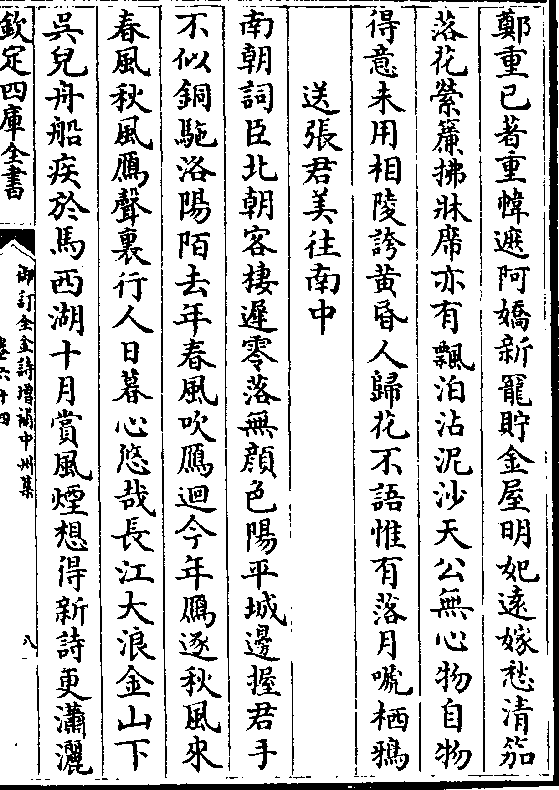 鄭重已著重幃遮阿嬌新寵貯金屋明妃遠嫁愁清笳
落花縈簾拂牀席亦有飄泊沾泥沙天公無心物自物
得意未用相陵誇黄昏人歸花不語惟有落月噦栖鴉
送張君美往南中
南朝詞臣北朝客棲遲零落無顔色陽平城邊握君手
不似銅駞洛陽陌去年春風吹鴈迴今年鴈逐秋風來
春風秋風鴈聲裏行人日暮心悠哉長江大浪金山下
吳兒舟船疾於馬西湖十月賞風煙想得新詩更瀟灑
欽定四庫全書
御訂全金詩增補中州集
卷六十四
八